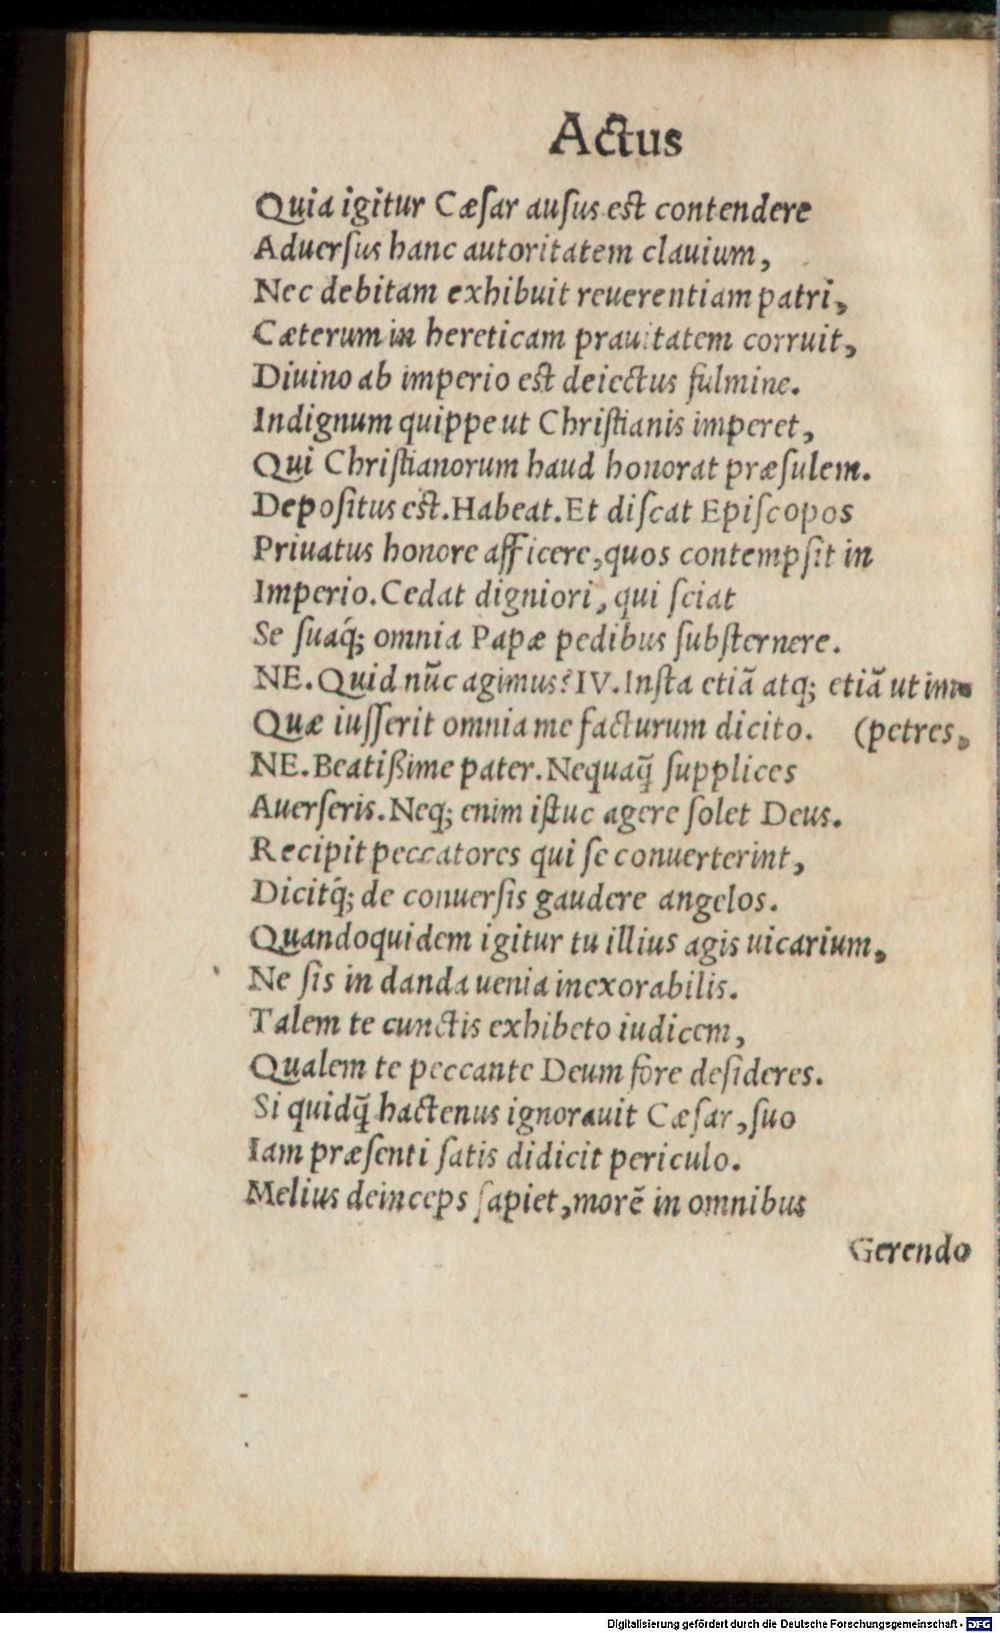 Actus
Quia igitur Cæſar auſus est contendere
Aduerſus hanc autoritatem clauium,
Nec debitam exhibuit reuerentiam patri,
Cæterum in hereticam prauitatem corruit,
Diuino ab imperio est deiectus fulmine.
Indignum quippe ut Chriſtianis imperet,
Qui Chriſtianorum haud honorat præſulem.
Depoſitus est. Habeat. Et diſcat Epiſcopos
Priuatus honore afficere, quos contempſit in
Imperio. Cedat digniori, qui ſciat
Se ſuaq́; omnia Papæ pedibus ſubſternere.
NE. Quid nũc agimus? IV. Inſta etiã atq; etiã ut im-
Quæ iuſſerit omnia me facturum dicito. (petres,
NE. Beatißime pater. Nequaq̃ ſupplices
Auerſeris. Neq; enim iſtuc agere ſolet Deus.
Recipit peccatores qui ſe conuerterint,
Dicitq́; de conuerſis gaudere angelos.
Quandoquidem igitur tu illius agis uicarium,
Ne ſis in danda uenia inexorabilis.
Talem te cunctis exhibeto iudicem,
Qualem te peccante Deum fore deſideres.
Si quidq̃ hactenus ignorauit Cæſar, ſuo
Iam præſenti ſatis didicit periculo.
Melius deinceps ſapiet, morẽ in omnibus
Gerendo
Digitalisierung gefördert durch die Deutsche Forschungsgemeinschaft - DFG